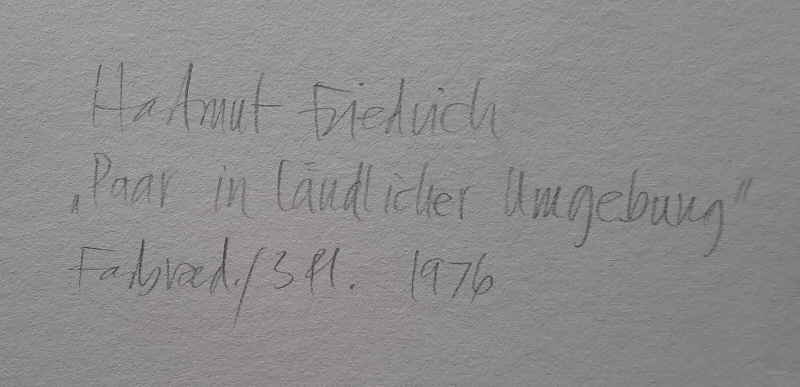 Hartmut Friedrich
„Paar in ländlicher Umgebung"
Farbrad./3 Pl. 1976